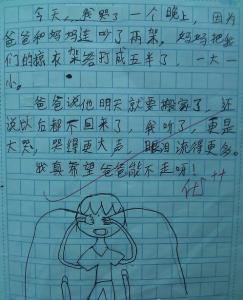 今天,我哭了一个晚上,因为
爸爸和妈妈连吵了两架。妈妈把我
们的晾衣架给打成五半了,一大一
小。
爸爸说他明天就要搬家了,还
说以后都不回来了,我听了,更是
大哭,哭得更大声,眼泪流得更多。
我真希望爸爸能不走呀!
优++